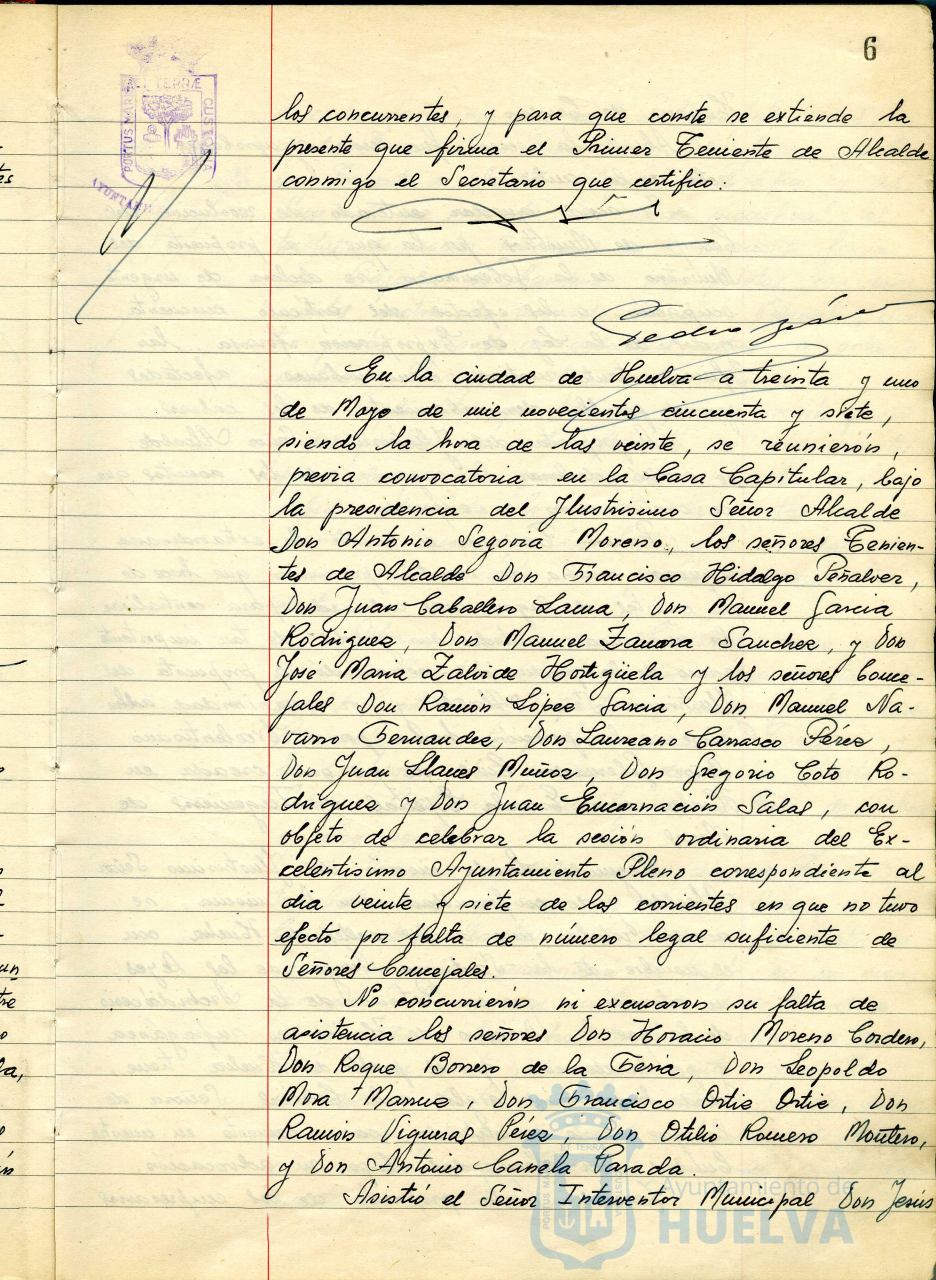 6
los concurrentes, y para que conste se extiende la
presente que firma el Primer Teniente de Alcalde
conmigo el Secretario que certifico:
En la ciudad de Huelva a treinta y uno
de Mayo de mil novecientos cincuenta y siete,
siendo la hora de las veinte, se reunierón,
previa convocatoria en la Casa Capitular, bajo
la presidencia del Ilustrisimo Señor Alcalde
Don Antonio Segovia Moreno, los señores Tenien-
tes de Alcalde Don Francisco Hidalgo Peñalver,
Don Juan Caballero Lama, Don Manuel Garcia
Rodriguez, Don Manuel Zamora Sanchez, y Don
José Maria Zalvide Hortigüela y los señores Conce-
jales Don Ramón López Garcia, Don Manuel Na-
varro Fernandez, Don Laureano Carrasco Pérez,
Don Juan Llanes Muñoz, Don Gregorio Coto Ro-
driguez y Don Juan Encarnación Salas, con
objeto de celebrar la sesión ordinaria del Ex-
celentisimo Ayuntamiento Pleno correspondiente al
dia veinte y siete de los corrientes en que no tuvo
efecto por falta de número legal suficiente de
Señores Concejales.
No concurrierón ni excusaron su falta de
asistencia los señores Don Horacio Moreno Cordero,
Don Roque Borrero de la Feria, Don Leopoldo
Mora Marruz, Don Francisco Ortiz Ortiz, Don
Ramón Vigueras Pérez, Don Otilio Romero Montero,
y Don Antonio Canela Parada.
Asistió el Señor Interventor Municipal Don Jesús
Ayuntamiento de
HUELVA